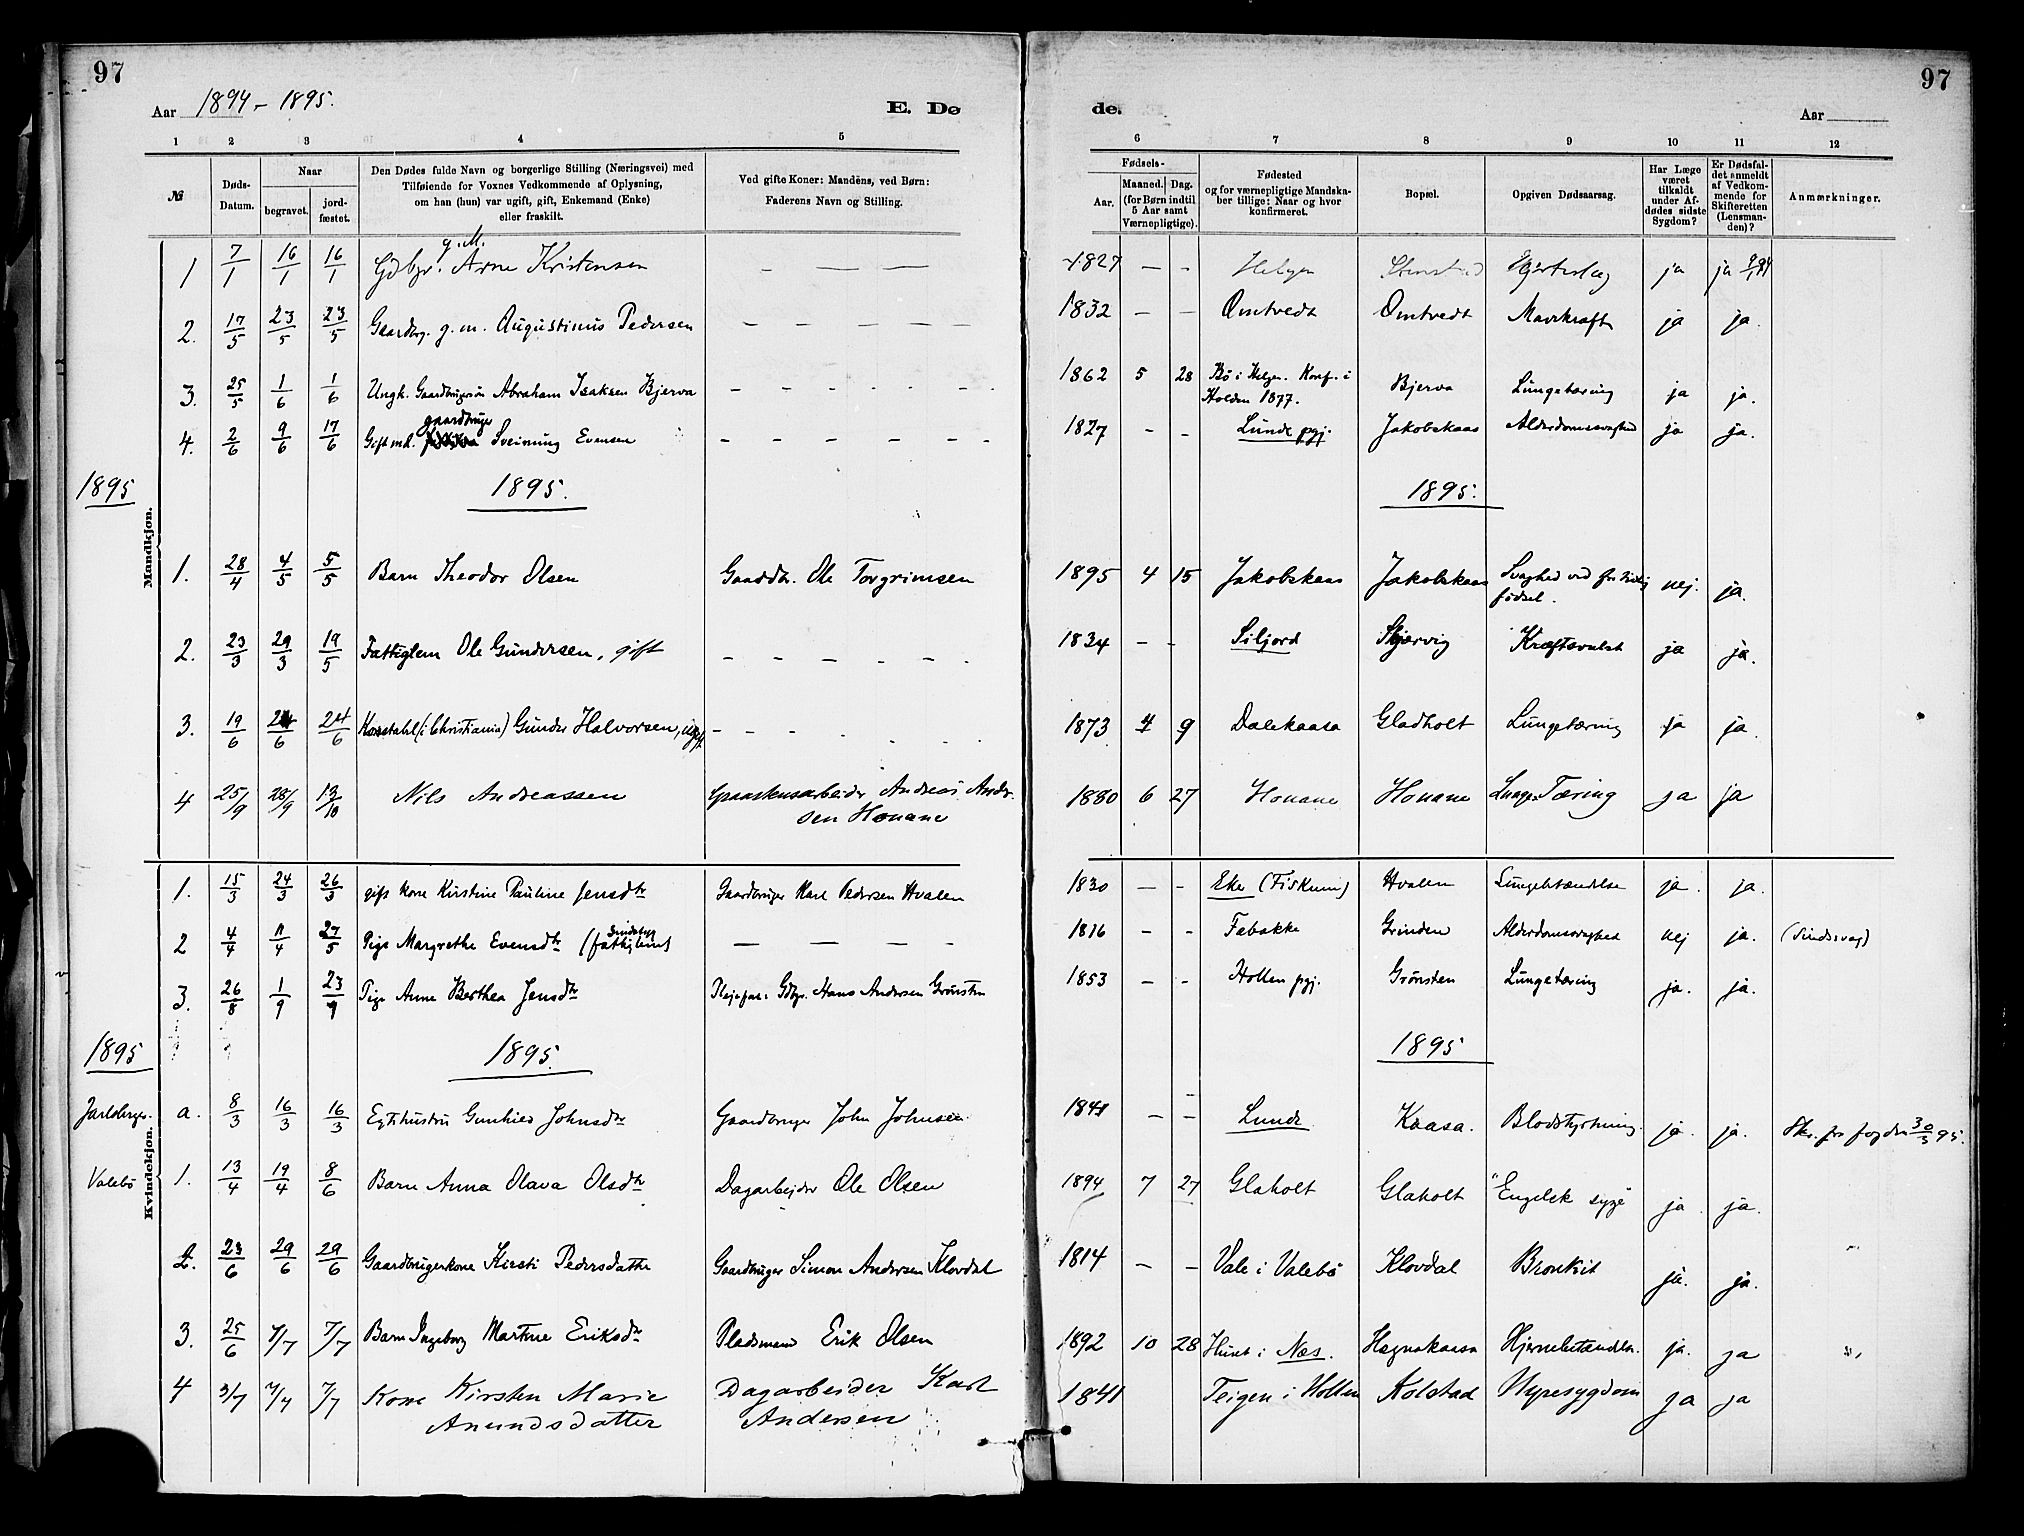 97
97
Aar 1894-1895.
E. Dø
de.
Aar
1 2 3 4 5 6 7 8 9 10 11 12
№
Døds-Datum.
Naar
begravet.
jord-fæstet.
Den Dødes fulde Navn og borgerlige Stilling (Næringsvei) med
Tilføiende for Voxnes Vedkommende af Oplysning,
om han (hun) var ugift, gift, Enkemand (Enke)
eller fraskilt.
Ved gifte Koner: Mandens, ved Børn:
Faderens Navn og Stilling.
Fødsels-
Aar.
Maaned. Dag.
(for Børn indtil
5 Aar samt
Værnepligtige).
Fødested
og for værnepligtige Mandska-
ber tillige: Naar og hvor
konfirmeret.
Bopæl.
Opgiven Dødsaarsag.
Har Læge
været
tilkaldt
under Af-
dødes sidste
Sygdom?
Er Dødsfal-
det anmeldt
af Vedkom-
mende for
Skifteretten
(Lensman-
den)?
Anmærkninger.
Mandkjøn.
1 7/1 16/1 16/1 Gdbgr. g. M. Arne Kristensen — — — 1827 — - Helgen Stenstad Hjerteslag ja ja 9/1 94
2. 17/5 23/5 23/5 Gaardbrg. g. m. Augustinus Pedersen — — — — — 1832 — - Omtvedt Omtvedt Mavekræft ja ja.
3. 25/5 1/6 1/6 Ungk. Gaardbrugersøn Abraham Isaksen Bjerva - - - - - - 1862 5 28 Bö i Helgen. Konf. i
Holden 1877. Bjerva Lungetæring ja ja.
4. 2/6 9/6 17/6 Gift md. gaardbruger Sveinung Evensen - - - - - - 1827 - - Lunde pgj. Jakobskaas Alderdomssvaghed ja ja.
1895 1895. 1895.
1. 28/4 4/5 5/5 Barn Theodor Olsen Gaardbr. Ole Torgrimsen 1895 4 15 Jakobskaas Jakobskaas Svaghed ved for tidlig
födsel. nej. ja.
2. 23/3 29/3 19/5 Fattiglem Ole Gundersen, gift - - - - - - 1834 - - Siljord Skjærvig Kræftsvulst ja ja.
3. 19/6 24/6 24/6 (i Christiania) Gunder Halvorsen, ugift. - - - - - - 1873 4 9 Dalekaasa Gladholt Lungetæring ja ja.
4 25/9 28/9 13/10 Nils Andreassen Graastensarbeider Andreas Ander-
sen Honane 1880 6 27 Honane Honane Lunge Tæring ja ja
Kvindekjøn.
1. 15/3 24/3 26/3 gift kone Kirstine Pauline Jensdtr Gaardbruger Karl Pedersen Hvalen 1830 — - Eker (Fiskum) Hvalen Lungebetændelse ja. ja.
2 4/4 11/4 27/5 Pige Margrethe Evensdtr (fattiglem) — — — — - 1816 - - Fabakke Grinden Alderdomssvaghed nej ja. (sindssvag)
3. 26/8 1/9 23/9 Pige Anne Berthea Jensdtr Plejefar: Gdbgr. Hans Andersen Grönsten 1853 - - Hollen pgj. Grönsten Lungetæring ja. ja.
1895 1895. 1895
Jarlsberges. a. 8/3 16/3 16/3 Egtehustru Gunhild Johnsdtr Gaardbruger John Johnsen 1841 — — Lunde Kaasa. Blodstyrtning. ja. ja. Skr. fra fogden 30/3 95.
Valebö 1. 13/4 19/4 8/6 Barn Anna Olava Olsdtr Dagarbejder Ole Olsen 1894 7 27 Glaholt Glaholt "Engelsk syge" ja ja.
2. 23/6 29/6 29/6 Gaardbrugerkone Kirsti Pedersdatter Gaardbruger Simon Andersen Klovdal 1814 — — Vale i Valebö Klovdal Bronkit ja. ja. "
3. 25/6 7/7 7/7 Barn Ingeborg Martine Eriksdtr Pladsmand Erik Olsen 1892 10 28 i Næs. Hagnakaasa Hjernebetændelse. ja. ja "
4 3/7 7/7 7/7 Kone Kirsten Marie
Anundsdatter Dagarbeider Karl
Andersen 1841 Teigen i Hollen Kolstad Nyresygdom ja ja